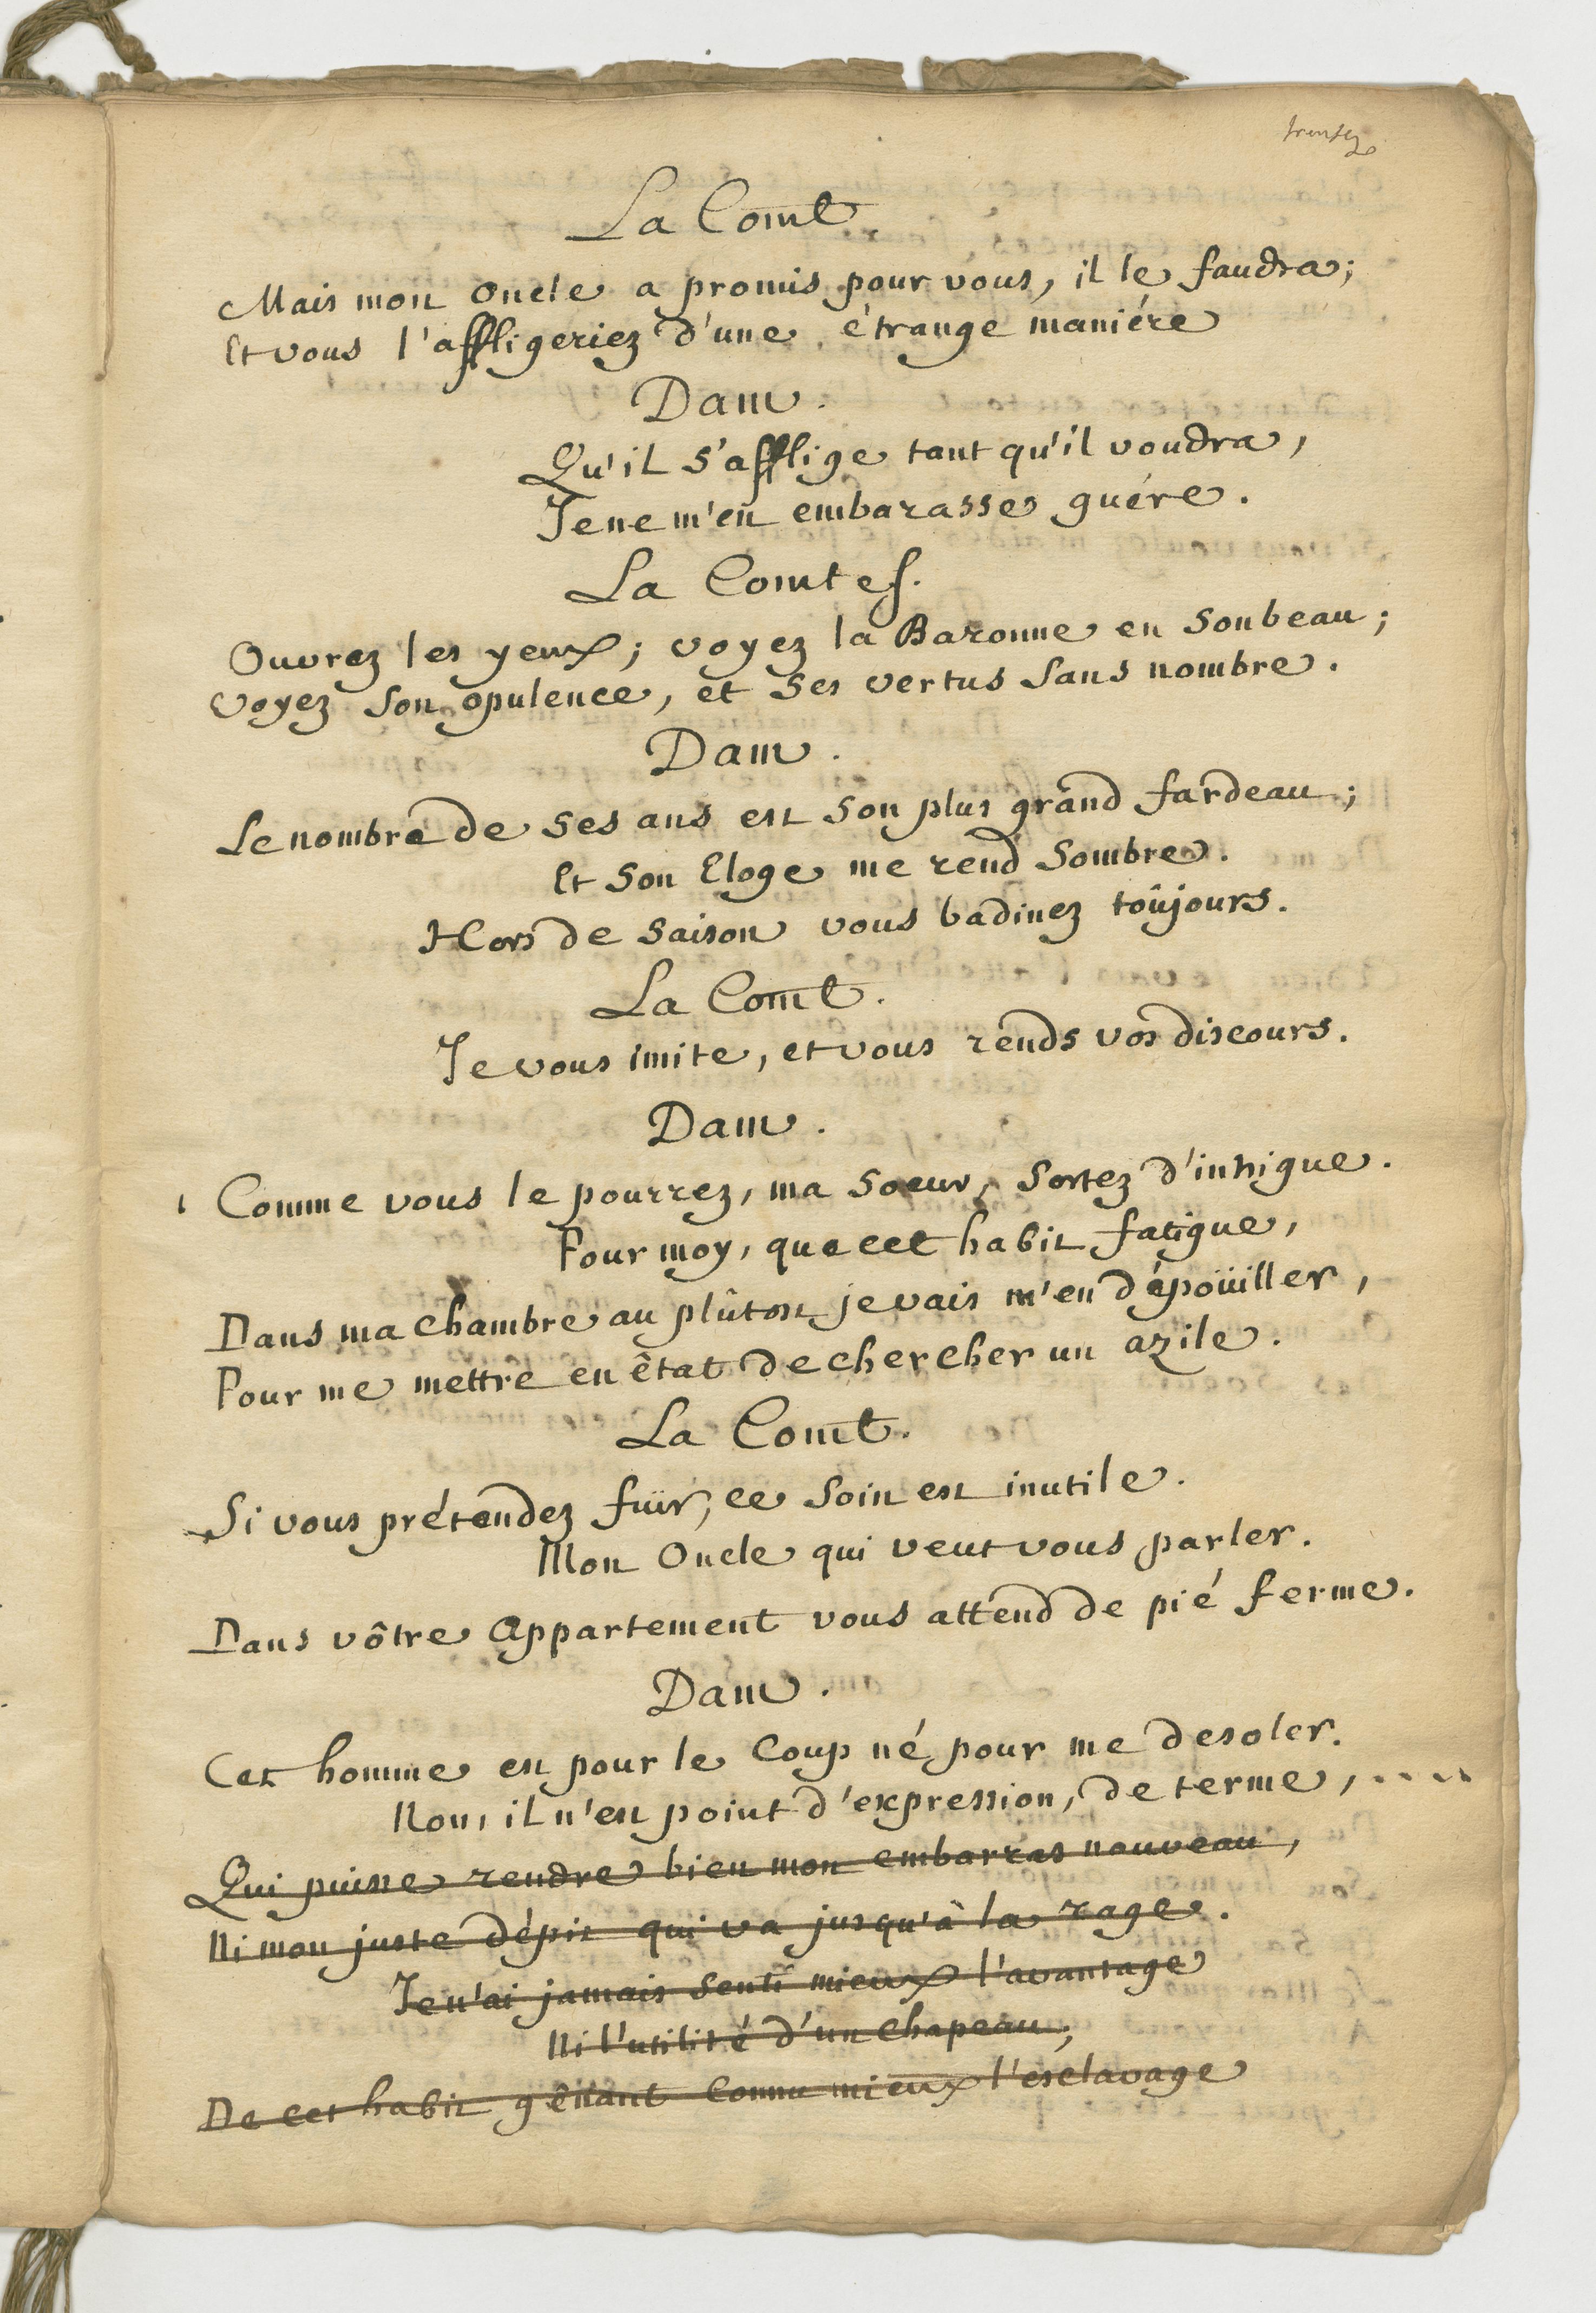 La Comt.
Mais mon Oncle a promis pour vous, il le faudra;
Et vous l'affligeriez d'une étrange maniére
Dam.
Qu'il s'afflige tant qu'il voudra,
Je ne m'en embarasse guére.
La Comtes.
Ouvrez les yeux; voyez la Baronne en son beau;
Voyez son opulence, et ses vertus sans nombre.
Dam.
Le nombre de ses ans est son plus grand fardeau;
Et son Eloge me rend sombre.
Hors de saison vous badinez toûjours.
La Comt.
Je vous imite, et vous rends vos discours.
Dam.
Comme vous le pourrez, ma soeur, sortez d'intrigue.
Pour moy, que cet habit fatigue,
Dans ma chambre au plûtost je vais m'en dépoüiller,
Pour me mettre en êtat de chercher un azile.
La Comt.
Si vous prétendez füir, ce soin est inutile.
Mon Oncle qui veut vous parler.
Dans vôtre Appartement vous attend de pié ferme.
Dam.
Cet homme est pour le coup né pour me desoler.
Non, il n'est point d'expression, de terme, .....
Qui puisse rendre bien mon embarras nouveau,
Ni mon juste dépit qui va jusqu'à la rage.
Je n'ai jamais senti mieux l'avantage
Ni l'utilité d'un chapeau;
De cet habit gênant connu mieux l'esclavage